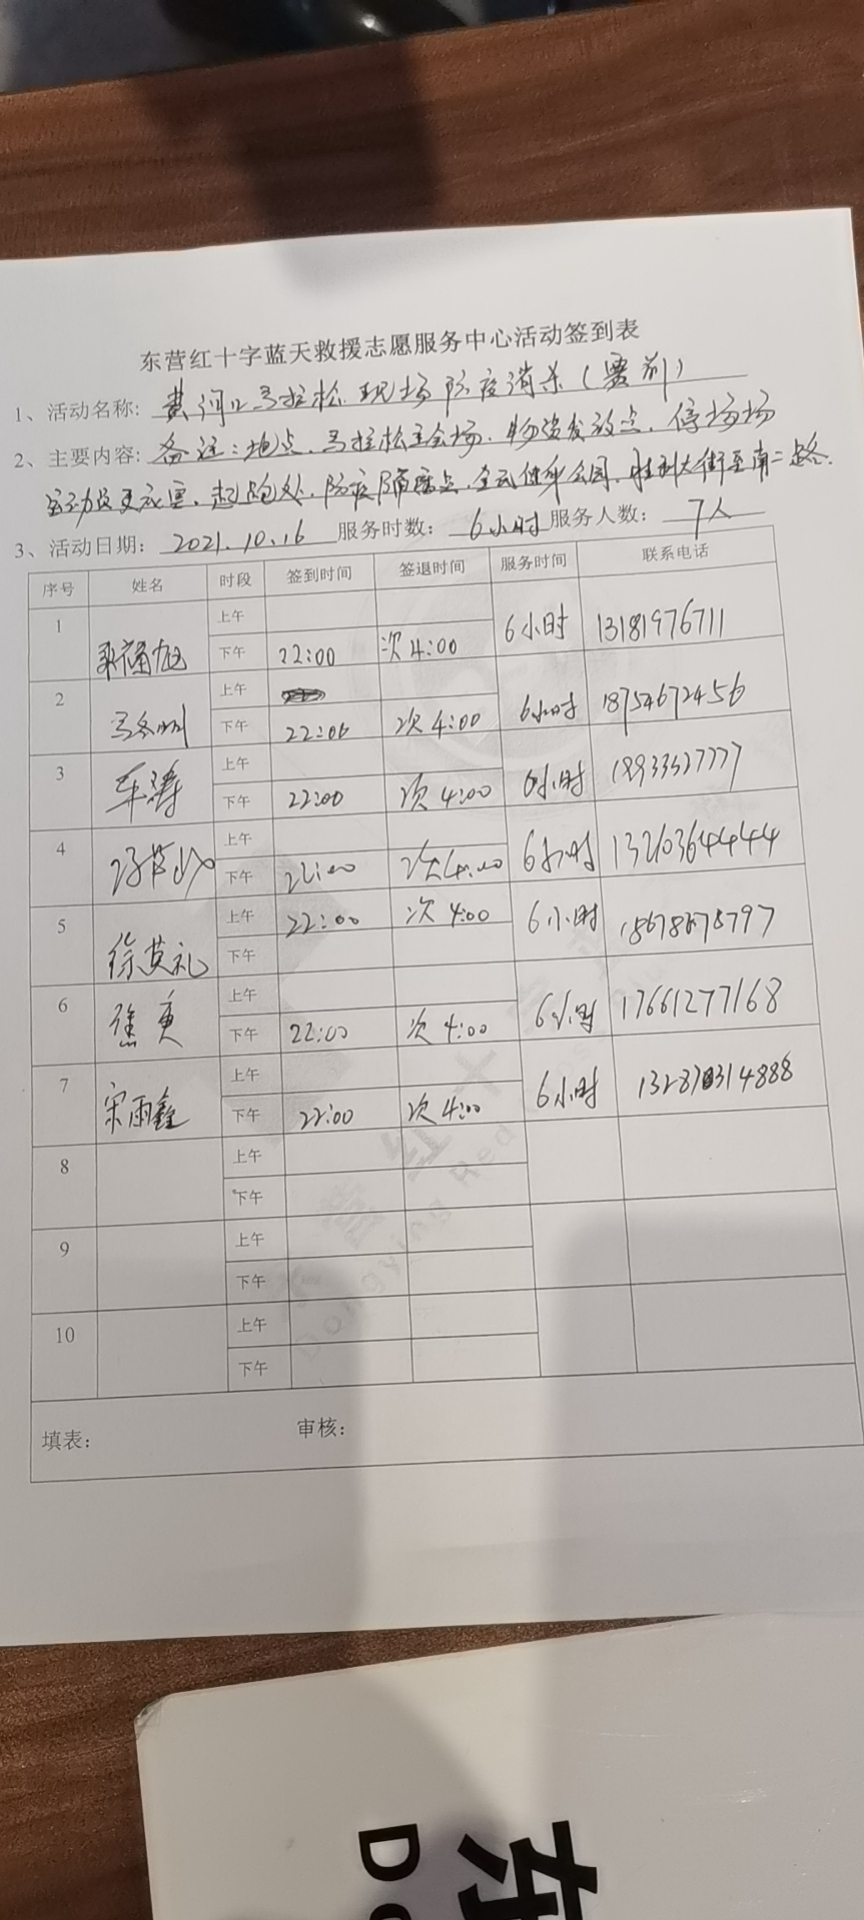 东营红十字蓝天救援志愿服务中心活动签到表
1、活动名称: 黄河口马拉松现场防疫消杀(赛前)
2、主要内容: 备注:地点、马拉松主会场、物资发放点、停场场
运动员更衣室、起跑处、防疫隔离点、全民健身公园、胜利大街至南二路
3、活动日期: 2021.10.16 服务时数: 6小时 服务人数: 7人
序号 姓名 时段 签到时间 签退时间 服务时间 联系电话
1 上午
下午 22:00 次4:00 6小时 13181976711
2 上午
下午 22:00 次4:00 6小时 18754672456
3 车涛 上午
下午 22:00 次4:00 6小时
4 上午
下午 22:00 次4:00 6小时
5 徐英礼 上午 22:00 次4:00 6小时
下午
6 上午
下午 22:00 次4:00 6小时 17661277168
7 宋雨鑫 上午
下午 22:00 次4:00 6小时
8 上午
下午
9 上午
下午
10 上午
下午
填表: 审核:
东